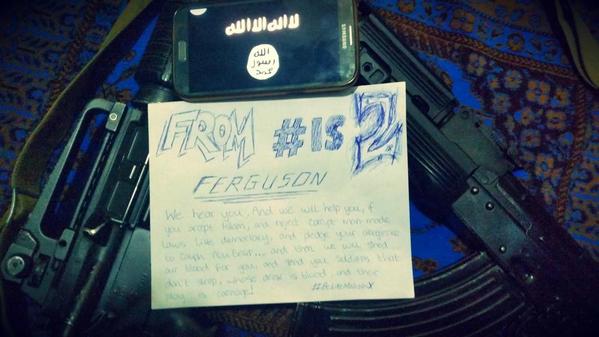 SAMSUNG
لا اله الا الله
الله
رسول
محمد
FROM #IS 2
FERGUSON
We hear you, And we will help you, if
you accept Islam, and reject corrupt man-made
laws like democracy, and pledge your allegience
to Caliph Abu Bakr.... and then we will shed
our blood for you, and send you soldiers that
don't sleep, whose drink is blood, and their
play is carnage!